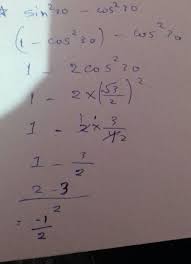 sin²30 - cos²30
(1 - cos²30) - cos²30
1 - 2cos²30
1 - 2×(√3/2)²
1 - 2 × 3/4 2
1 - 3/2
2-3/2
= -1/2